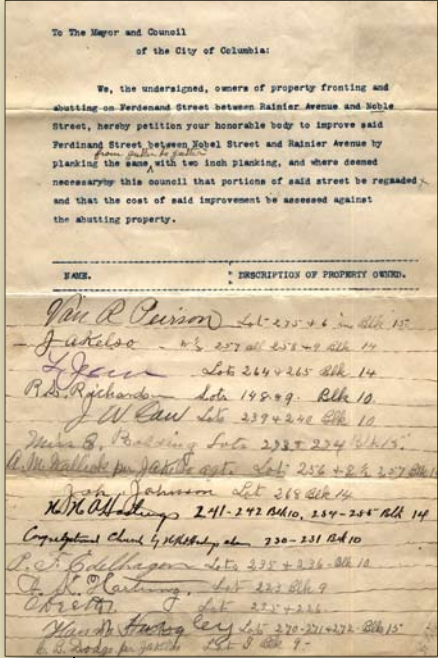 To The Mayor and Council
of the City of Columbia:
We, the undersigned, owners of property fronting and
abutting on Ferdenand Street between Rainier Avenue and Noble
Street, hereby petition your honorable body to improve said
Ferdinand Street between Nobel Street and Rainier Avenue by
from gutter to gutter
planking the same, with two inch planking, and where deemed
necessaryby this council that portions of said street be regraded
and that the cost of said improvement be assessed against
the abutting property.
NAME. DESCRIPTION OF PROPERTY OWNED.
Van R Peirson Lot 275 + 6 in Blk 15
J A Kelso 257 all 258 + 9 Blk 14
Lots 264 + 265 Blk 14
R.D. Richardson Lots 148 + 9. Blk 10.
J W Law Lots 239 + 240 Blk 10
Miss E. Lots 293 + 294 Blk 15
A. M. per Jakelso agt. Lot 256 + 257 Blk
Johnson Lot 268 Blk 14
H. H. A. Hastings 241-242 Blk 10, 284-285 Blk 14
Congregational Church by H H A Hastings 230-231 Blk 10
P. F. Edelhagen Lots 235 + 236 - Blk 10
Lot 223 Blk 9
Lot 225 + 226
Lots 270-271 + 272 - Blk 15
C. B. Dodge per Jakelso Lot 9 Blk 9 -